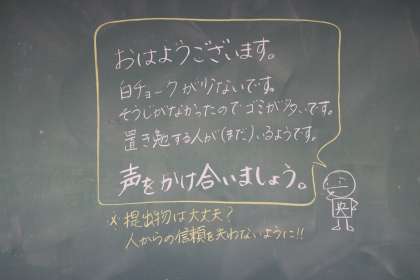 おはようございます。
白チョークが少ないです。
そうじがなかったのでゴミが多いです。
置き勉する人が(まだ)いるようです。
声をかけ合いましょう。
×提出物は大丈夫?
人からの信頼を失わないように!!